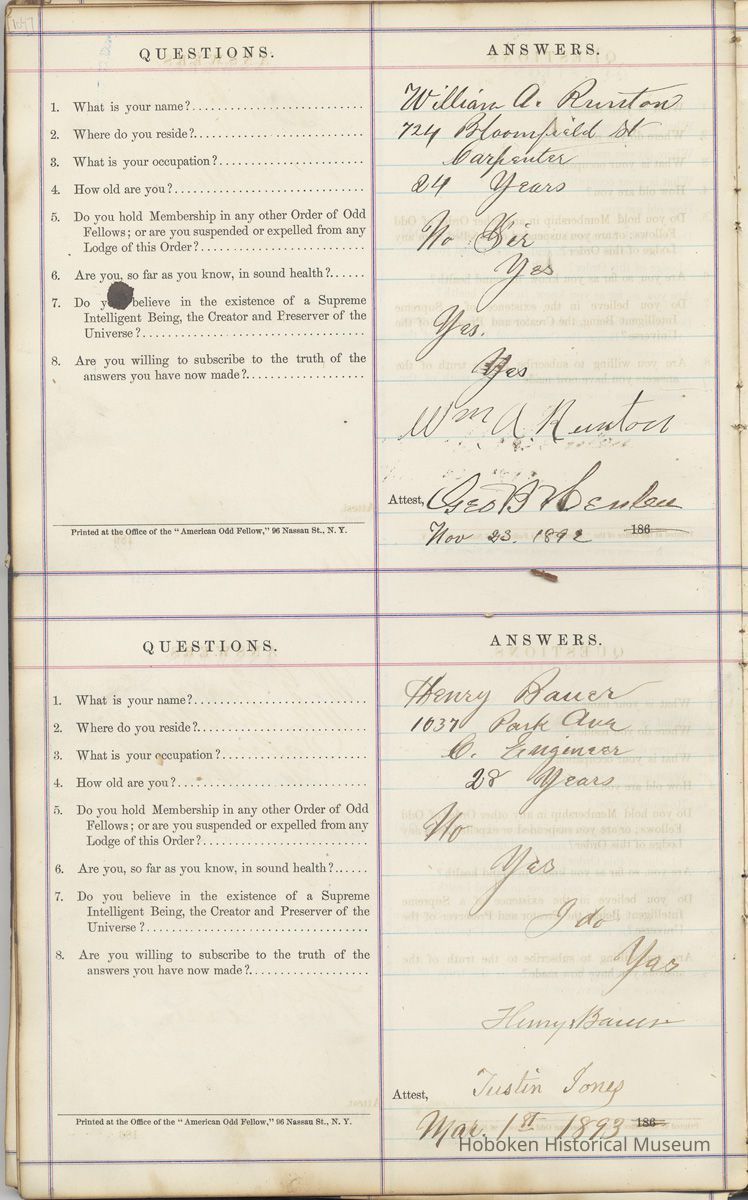 1047
QUESTIONS.
ANSWERS.
1. What is your name?
William A. Runton
2. Where do you reside?
724 Bloomfield St
3. What is your occupation?
Carpenter
4. How old are you?
24 Years
5. Do you hold Membership in any other Order of Odd
Fellows; or are you suspended or expelled from any
Lodge of this Order?
No Sir
6. Are you, so far as you know, in sound health?
Yes
7. Do y believe in the existence of a Supreme
Intelligent Being, the Creator and Preserver of the
Universe?
Yes.
8. Are you willing to subscribe to the truth of the
answers you have now made?
Yes
Wm A. Runton
Attest, Geo B
Nov 23. 1892 186
Printed at the Office of the "American Odd Fellow," 96 Nassau St., N. Y.
QUESTIONS.
ANSWERS.
1. What is your name?
Henry Bauer
2. Where do you reside?
1037 Park Ave
3. What is your occupation?
C. Engineer
4. How old are you?
28 Years
5. Do you hold Membership in any other Order of Odd
Fellows; or are you suspended or expelled from any
Lodge of this Order?
No
6. Are you, so far as you know, in sound health?
Yes
7. Do you believe in the existence of a Supreme
Intelligent Being, the Creator and Preserver of the
Universe?
I do
8. Are you willing to subscribe to the truth of the
answers you have now made?
Yes
Henry Bauer
Attest, Justin Jones
Mar. 1st 1893 186
Printed at the Office of the "American Odd Fellow," 96 Nassau St., N. Y.
Hoboken Historical Museum